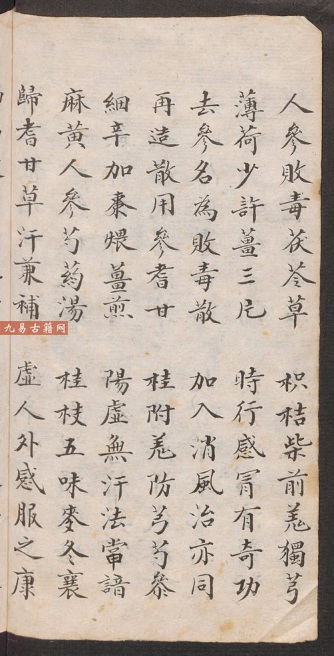 人參敗毒茯苓草　枳桔柴前羌獨芎
薄荷少許薑三片　時行感冒有奇功
去參名為敗毒散　加入消風治亦同
再造散用參耆甘　桂附羌防芎芍參
細辛加棗煨薑煎　陽虛無汗法當諳
麻黃人參芍藥湯　桂枝五味麥冬襄
歸耆甘草汗兼補　虛人外感服之康
九易古籍网